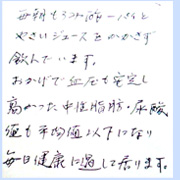 毎朝もろみ酢一パイと
やさいジュースをかかさず
飲んでいます。
おかげで血圧も安定し
高かった中性脂肪・尿酸
値も平均値以下になり
毎日健康に過して居ります。